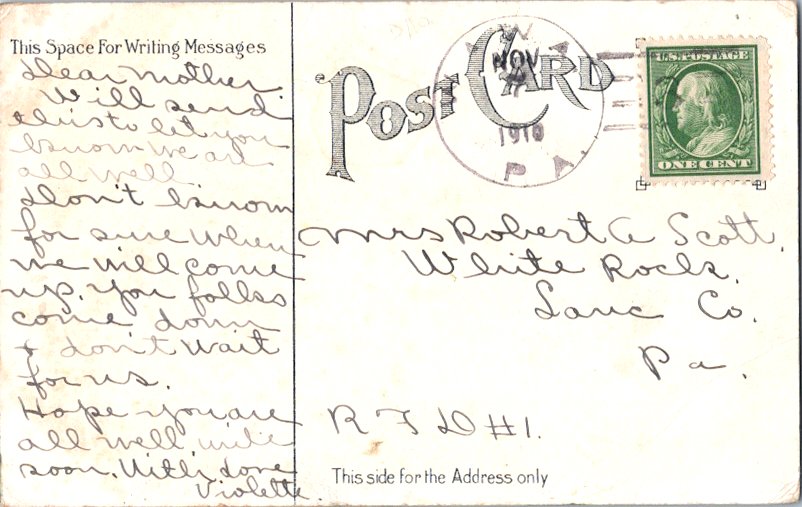 This Space For Writing Messages
Dear Mother
Will send
this to let you
know we are
all well.
Don't know
for sure when
we will come
up. You folks
come down
& don't wait
for us.
Hope you are
all well write
soon. With love
Violette.
POST CARD
NOV
1910
PA.
U.S. POSTAGE
ONE CENT
Mrs Robert A Scott,
White Rock,
Lanc Co.
Pa.
R F D #1.
This side for the Address only